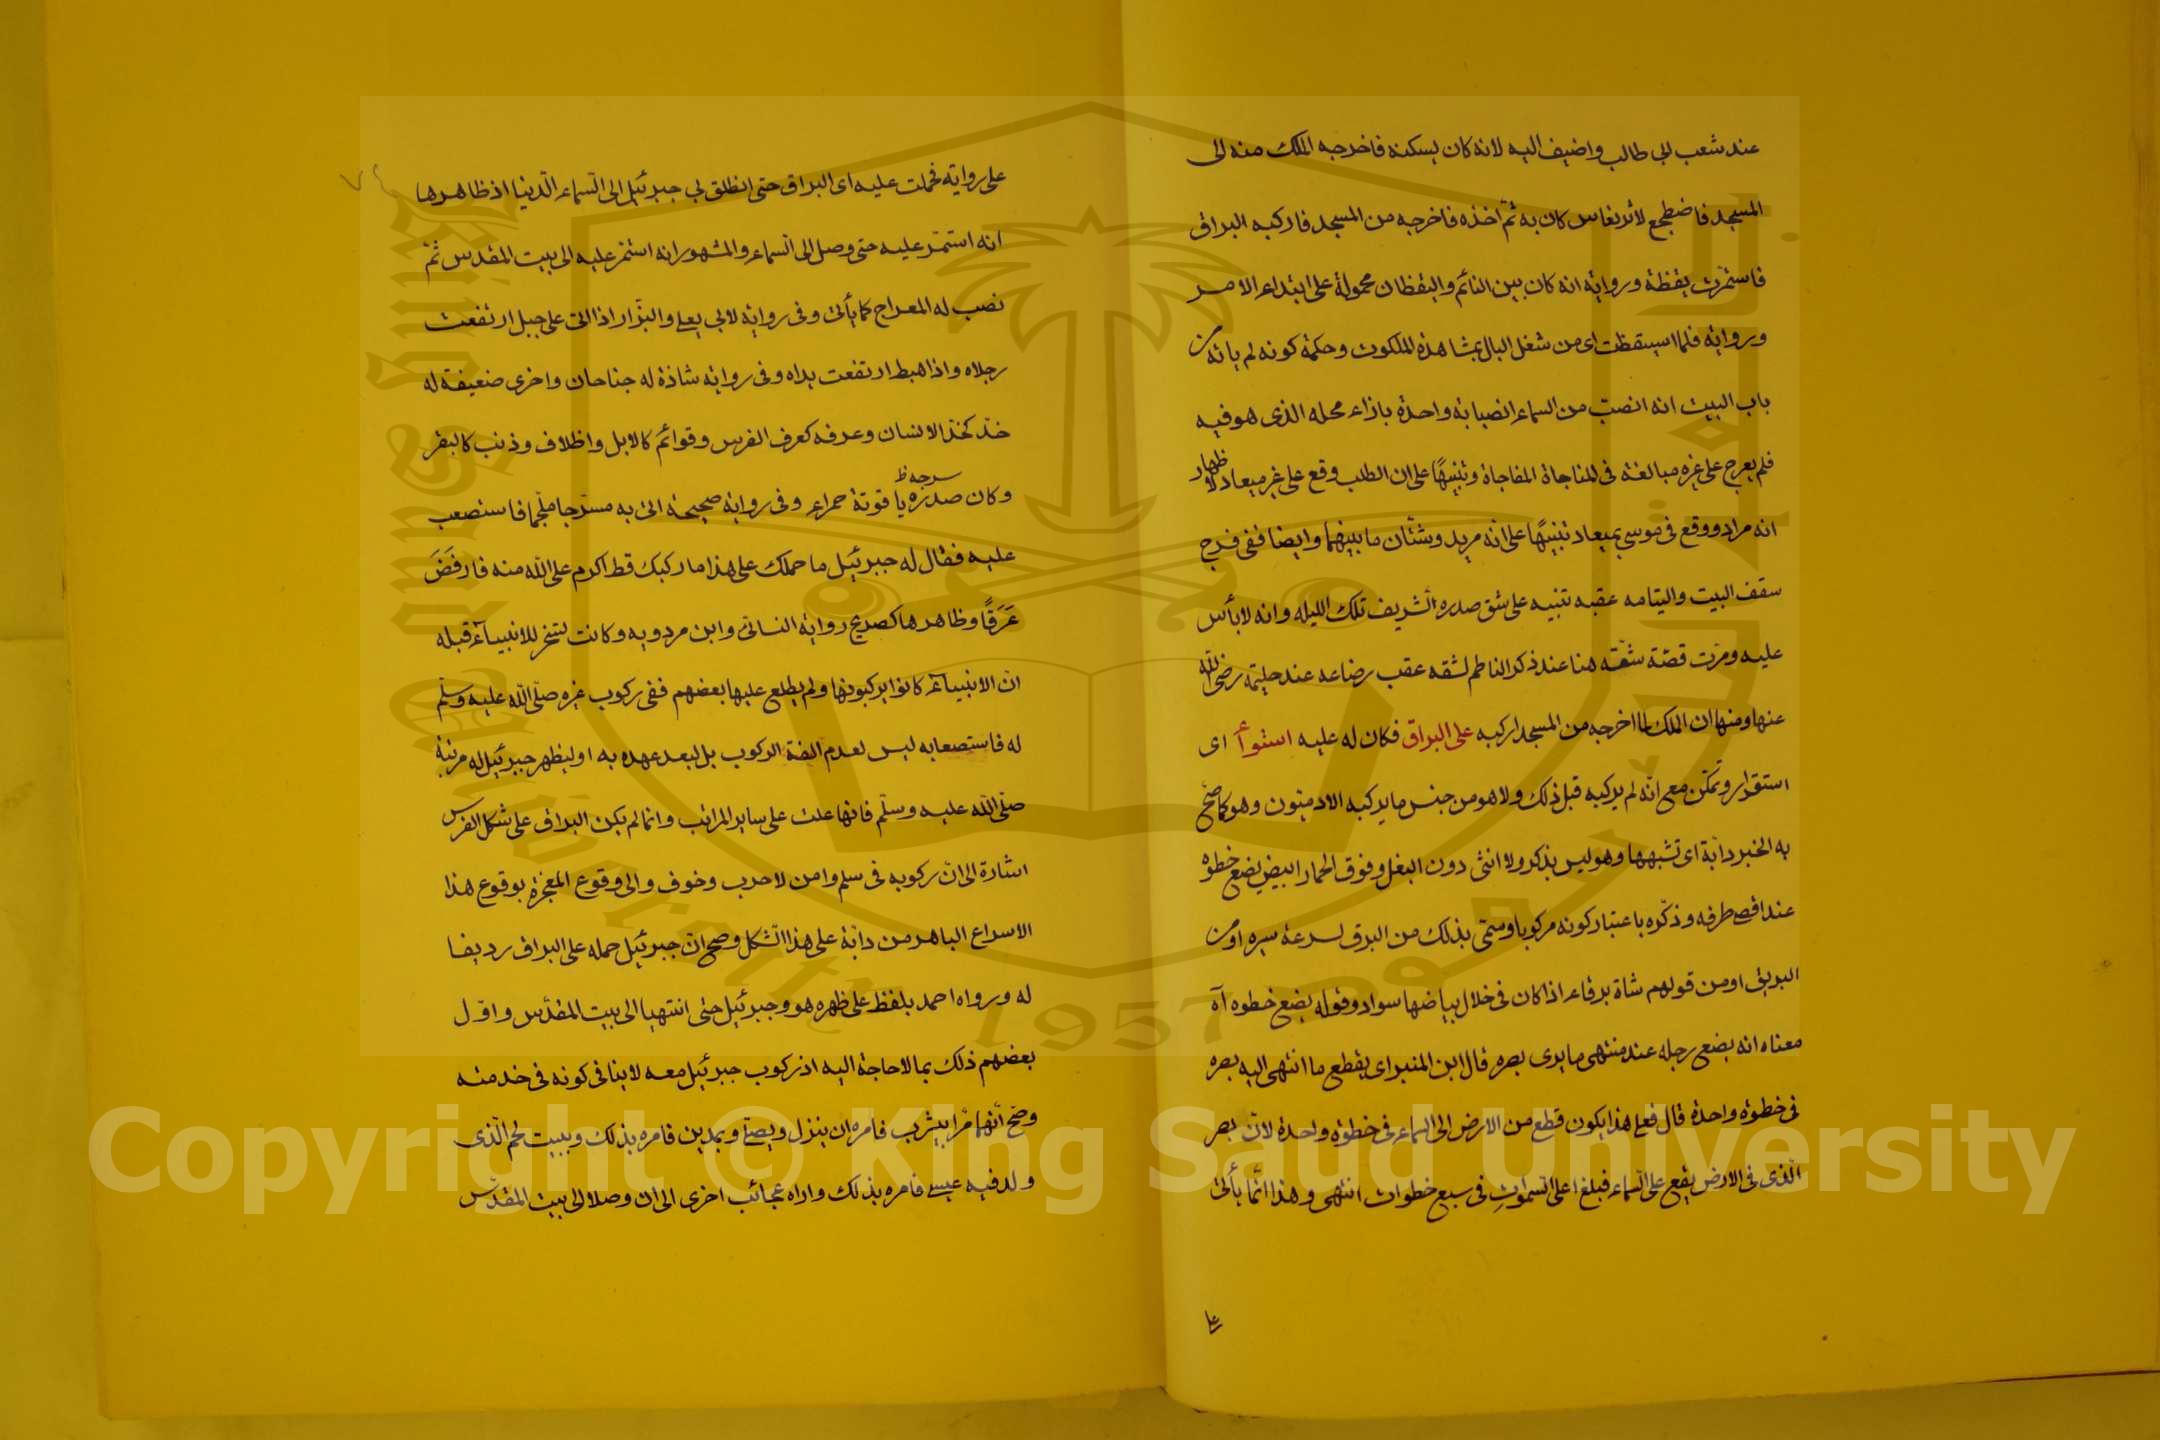 عند شعب ابي طالب واضيف اليه لانه كان يسكنه فاخرجه الملك منه الى
المسجد فاضطجع لاثر نعاس كان به ثمّ اخذه فاخرجه من المسجد فاركبه البراق
فاستمرّت يقظة ورواية انه كان بين النائم واليقظان محمولة على ابتداء الامر
ورواية فلما استيقظت اى من شغل البال بمشاهدة الملكوت وحكمة كونه لم ياته من
باب البيت انه انصبّ من السماء انصبابة واحدة بازاء محله الذى هو فيه
فلم يعرج على غيره مبالغة فى المناجاة المفاجاة وتنبيهًا على ان الطلب وقع على غير ميعاد لاظهار
انه مراد ووقع فى موسى بميعاد تنبيهًا على انّه مريد وشتّان ما بينهما وايضا ففى فرج
سقف البيت والتيامه عقبه تنبيه على شق صدره الشريف تلك الليله وانه لا بأس
عليه ومرّت قصّة شقّه هنا عند ذكر الناظم لشقه عقب رضاعه عند حليمة رضى الله
عنها ومنها ان الملك لما اخرجه من المسجد اركبه على البراق فكان له عليه استوأ اى
استقرار وتمكّن مع انّه لم يركبه قبل ذلك ولا هو من جنس ما يركبه الادميّون وهو كما صحّ
به الخبر دابّة اى تشبهها وهو ليس بذكر ولا انثى دون البغل وفوق الحمار ابيض يضع خطوه
عند اقصى طرفه وذكّره باعتبار كونه مركوبا وسمّى بذلك من البرق لسرعة سيره او من
البريق او من قولهم شاة برقاء اذا كان فى خلال بياضها سواد وقوله يضع خطوه اه
معناه انه يضع رجله عند منتهى ما يرى بصره قال ابن المنير اى يقطع ما انتهى اليه بصره
فى خطوة واحدة قال فعلى هذا يكون قطع من الارض الى السماء فى خطوة واحدة لانّ بصر
الّذى فى الارض يقع على السّماء فبلغ اعلى السّموات فى سبع خطوات انتهى وهذا انّما يأتى
على
على رواية فحملت عليه اى البراق حتى انطلق بى جبرئيل الى السّماء الدّنيا اذ ظاهرها
انه استمرّ عليه حتى وصل الى السماء والمشهور انه استمر عليه الى بيت المقدس ثمّ
نصب له المعراج كما يأتى وفى رواية لابى يعلى والبزّار اذا اتى على جبل ارتفعت
رجلاه واذا هبط ارتفعت يداه وفى رواية شاذة له جناحان واخرى ضعيفة له
خدّ كخدّ الانسان وعرفه كعرف الفرس وقوائم كالابل واظلاف وذنب كالبقر
سرجه ظ
وكان صدره ياقوتة حمراء وفى رواية صحيحة اتى به مسرّجا ملجّما فاستصعب
عليه فقال له جبرئيل ما حملك على هذا ما ركبك قط اكرم على الله منه فارفَضَّ
عَرَقًا وظاهرها كصريح رواية النسائى وابن مردويه وكانت تسخر للانبيآء قبله
انّ الانبيآء كانوا يركبونها ولم يطلع عليها بعضهم ففى ركوب غيره صلّى الله عليه وسلّم
له فاستصعابه ليس لعدم الفة الركوب بل لبعد عهده به او ليظهر جبرئيل له مرتبة
صلّى الله عليه وسلّم فانها علت على ساير المراتب وانما لم يكن البراق على شكل الفرس
اشارة الى انّ ركوبه فى سلم وامن لا حرب وخوف والى وقوع المعجزة بوقوع هذا
الاسراع الباهر من دابّة على هذا الشكل وصح انّ جبرئيل حمله على البراق رديفا
له ورواه احمد بلفظ على ظهره هو وجبرئيل حتى انتهيا الى بيت المقدّس واوّل
بعضهم ذلك بما لا حاجة اليه اذ ركوب جبرئيل معه لا ينافى كونه فى خدمته
وصّح انّهما مرّا بيثرب فامره ان ينزل ويصلّى وبمدين فامره بذلك وببيت لحم الّذى
ولد فيه عيسى فامره بذلك واراه عجائب اخرى الى ان وصلا الى بيت المقدّس
King Saud University
1957
Copyright © King Saud University